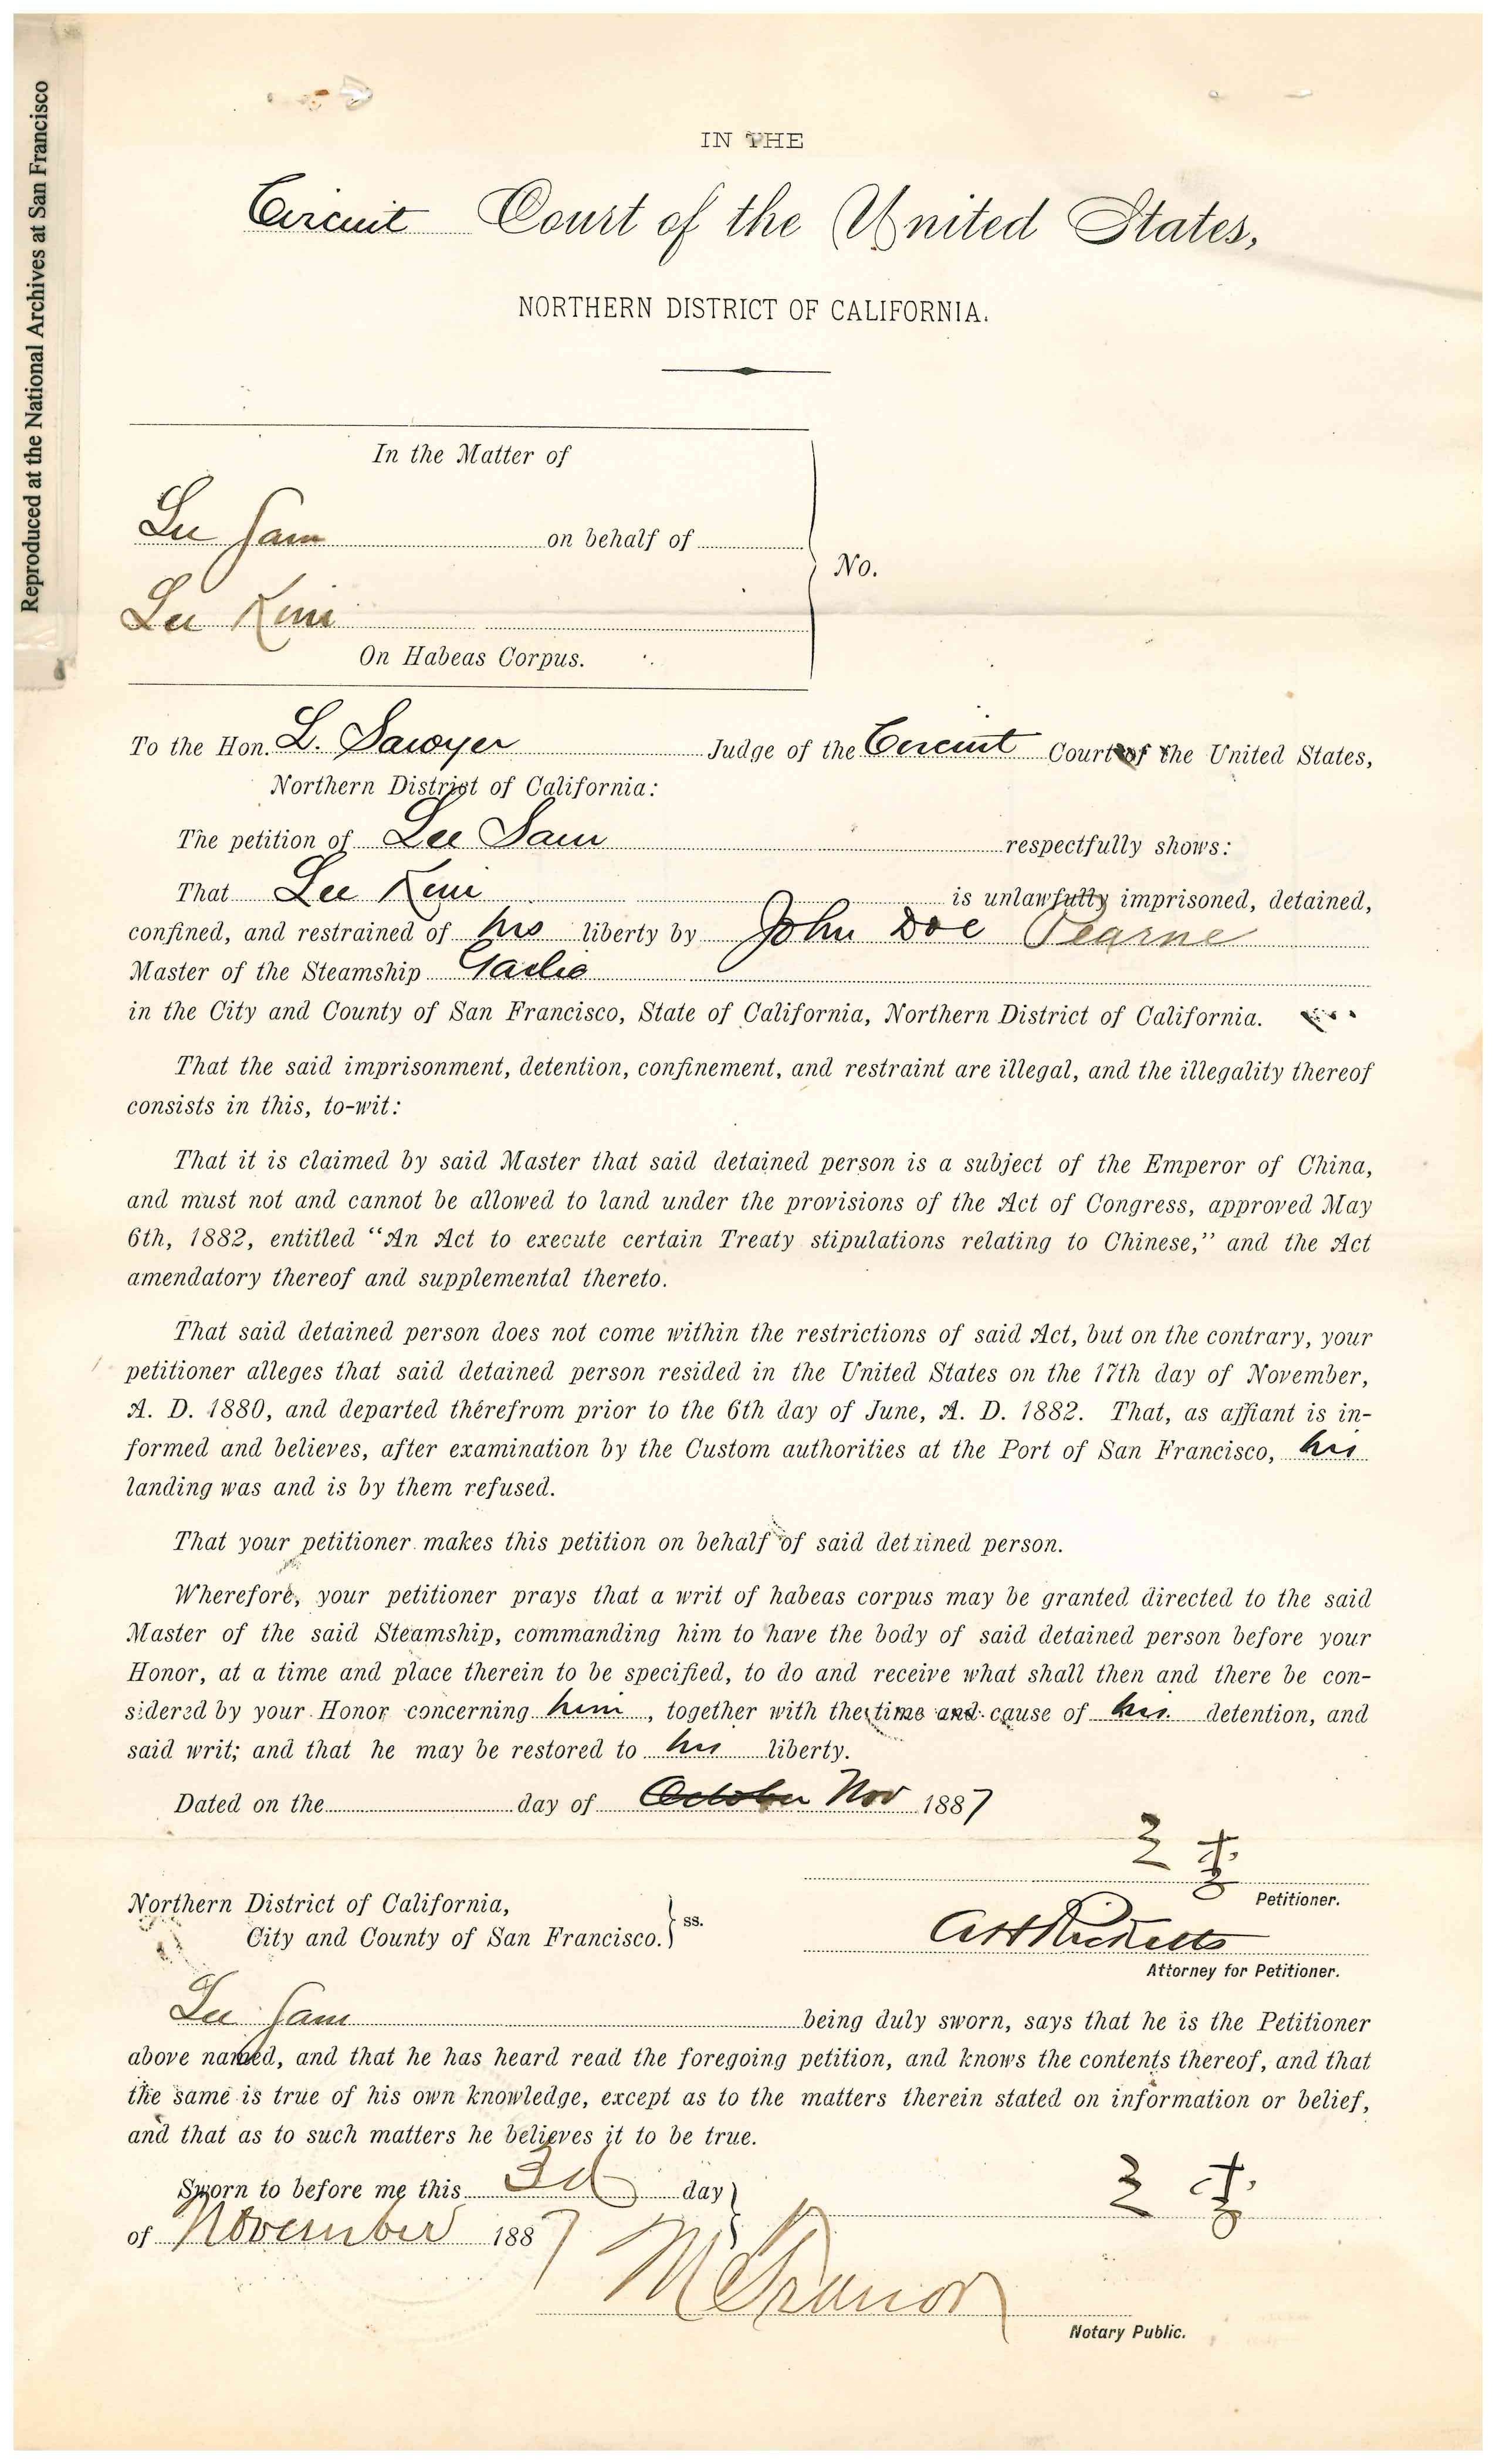 Reproduced at the National Archives at San Francisco
IN THE
Circuit Court of the United States,
NORTHERN DISTRICT OF CALIFORNIA.
In the Matter of
Lee Sam on behalf of
Lee Kim
No.
On Habeas Corpus.
To the Hon. L. Sawyer Judge of the Circuit Court of the United States,
Northern District of California:
The petition of Lee Sam respectfully shows:
That Lee Kim is unlawfully imprisoned, detained,
confined, and restrained of his liberty by John Doe Pearne
Master of the Steamship Gaelic
in the City and County of San Francisco, State of California, Northern District of California.
That the said imprisonment, detention, confinement, and restraint are illegal, and the illegality thereof
consists in this, to-wit:
That it is claimed by said Master that said detained person is a subject of the Emperor of China,
and must not and cannot be allowed to land under the provisions of the Act of Congress, approved May
6th, 1882, entitled “An Act to execute certain Treaty stipulations relating to Chinese,” and the Act
amendatory thereof and supplemental thereto.
That said detained person does not come within the restrictions of said Act, but on the contrary, your
petitioner alleges that said detained person resided in the United States on the 17th day of November,
A. D. 1880, and departed therefrom prior to the 6th day of June, A. D. 1882. That, as affiant is in-
formed and believes, after examination by the Custom authorities at the Port of San Francisco, his
landing was and is by them refused.
That your petitioner makes this petition on behalf of said detained person.
Wherefore, your petitioner prays that a writ of habeas corpus may be granted directed to the said
Master of the said Steamship, commanding him to have the body of said detained person before your
Honor, at a time and place therein to be specified, to do and receive what shall then and there be con-
sidered by your Honor concerning him, together with the time and cause of his detention, and
said writ; and that he may be restored to his liberty.
Dated on the day of October Nov 1887
Petitioner.
Northern District of California,
City and County of San Francisco. } ss.
A H Ricketts
Attorney for Petitioner.
Lee Sam being duly sworn, says that he is the Petitioner
above named, and that he has heard read the foregoing petition, and knows the contents thereof, and that
the same is true of his own knowledge, except as to the matters therein stated on information or belief,
and that as to such matters he believes it to be true.
Sworn to before me this 3d day
of November 1887
Notary Public.